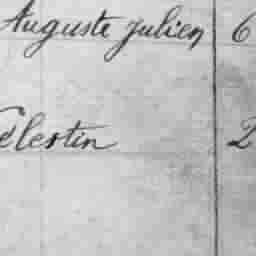 Auguste Julien 6
Célestin 2